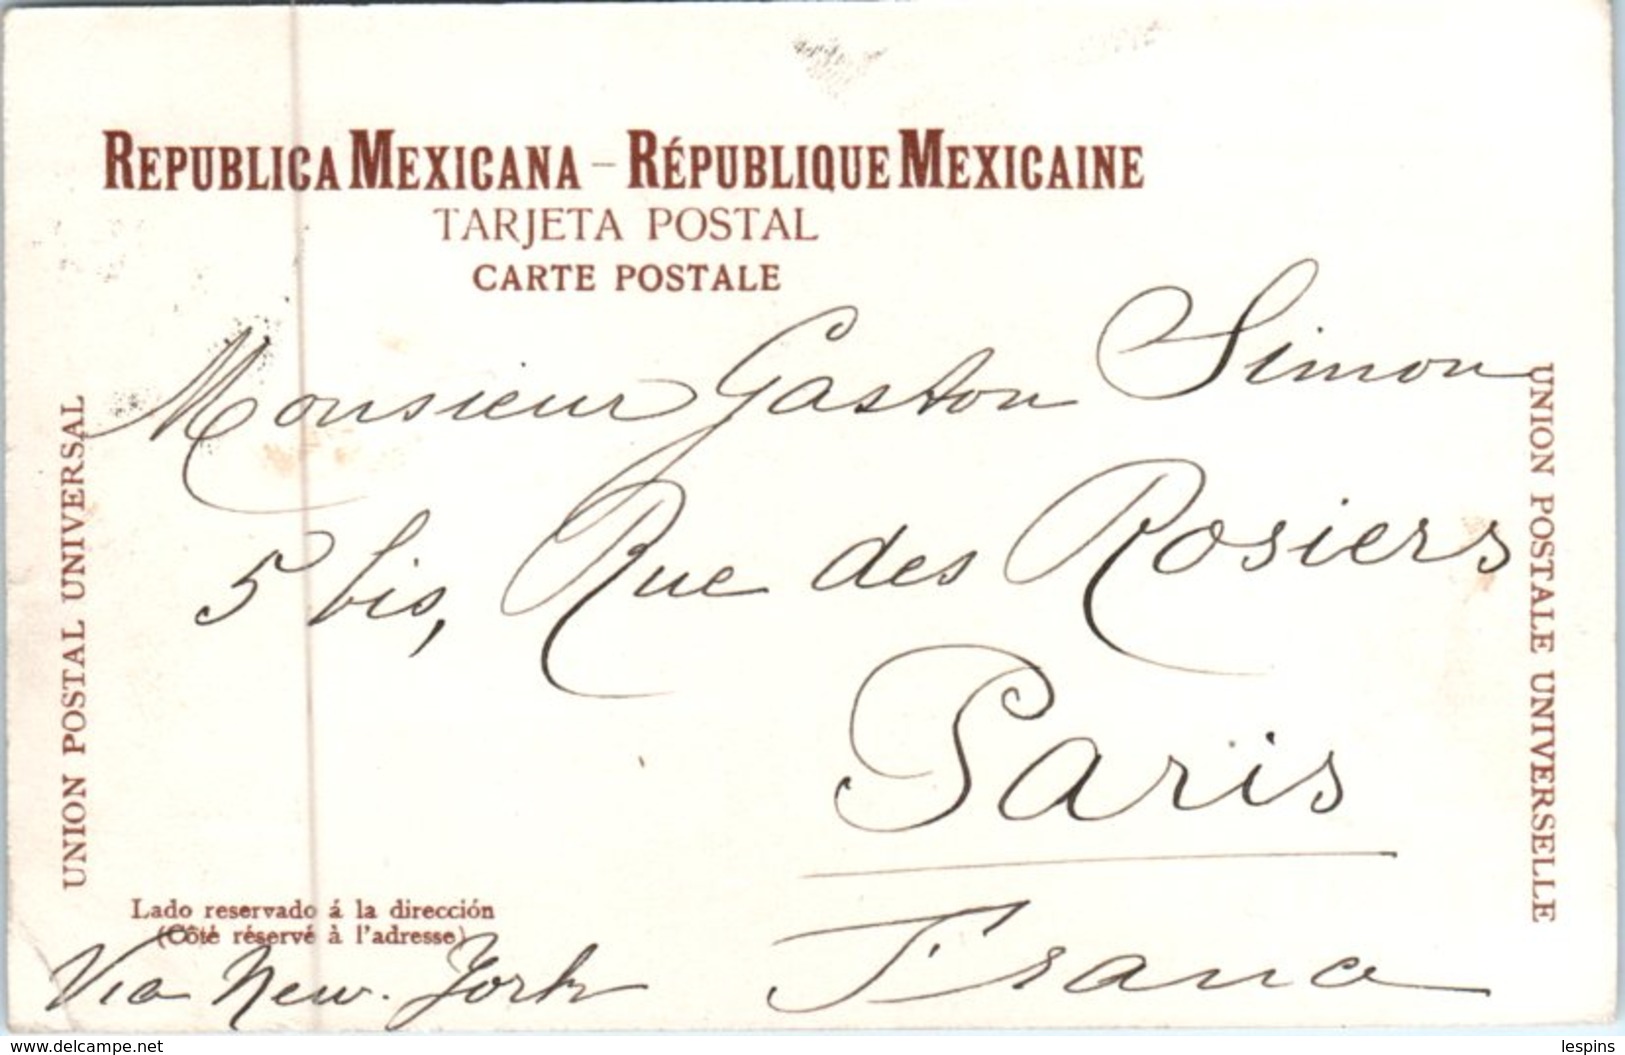 REPUBLICA MEXICANA – RÉPUBLIQUE MEXICAINE
TARJETA POSTAL
CARTE POSTALE
Monsieur Gaston Simon
5 bis, Rue des Rosiers
Paris
France
UNION POSTAL UNIVERSAL
UNION POSTALE UNIVERSELLE
Lado reservado á la dirección
(Côté réservé à l'adresse)
Via New. York
www.delcampe.net
lespins